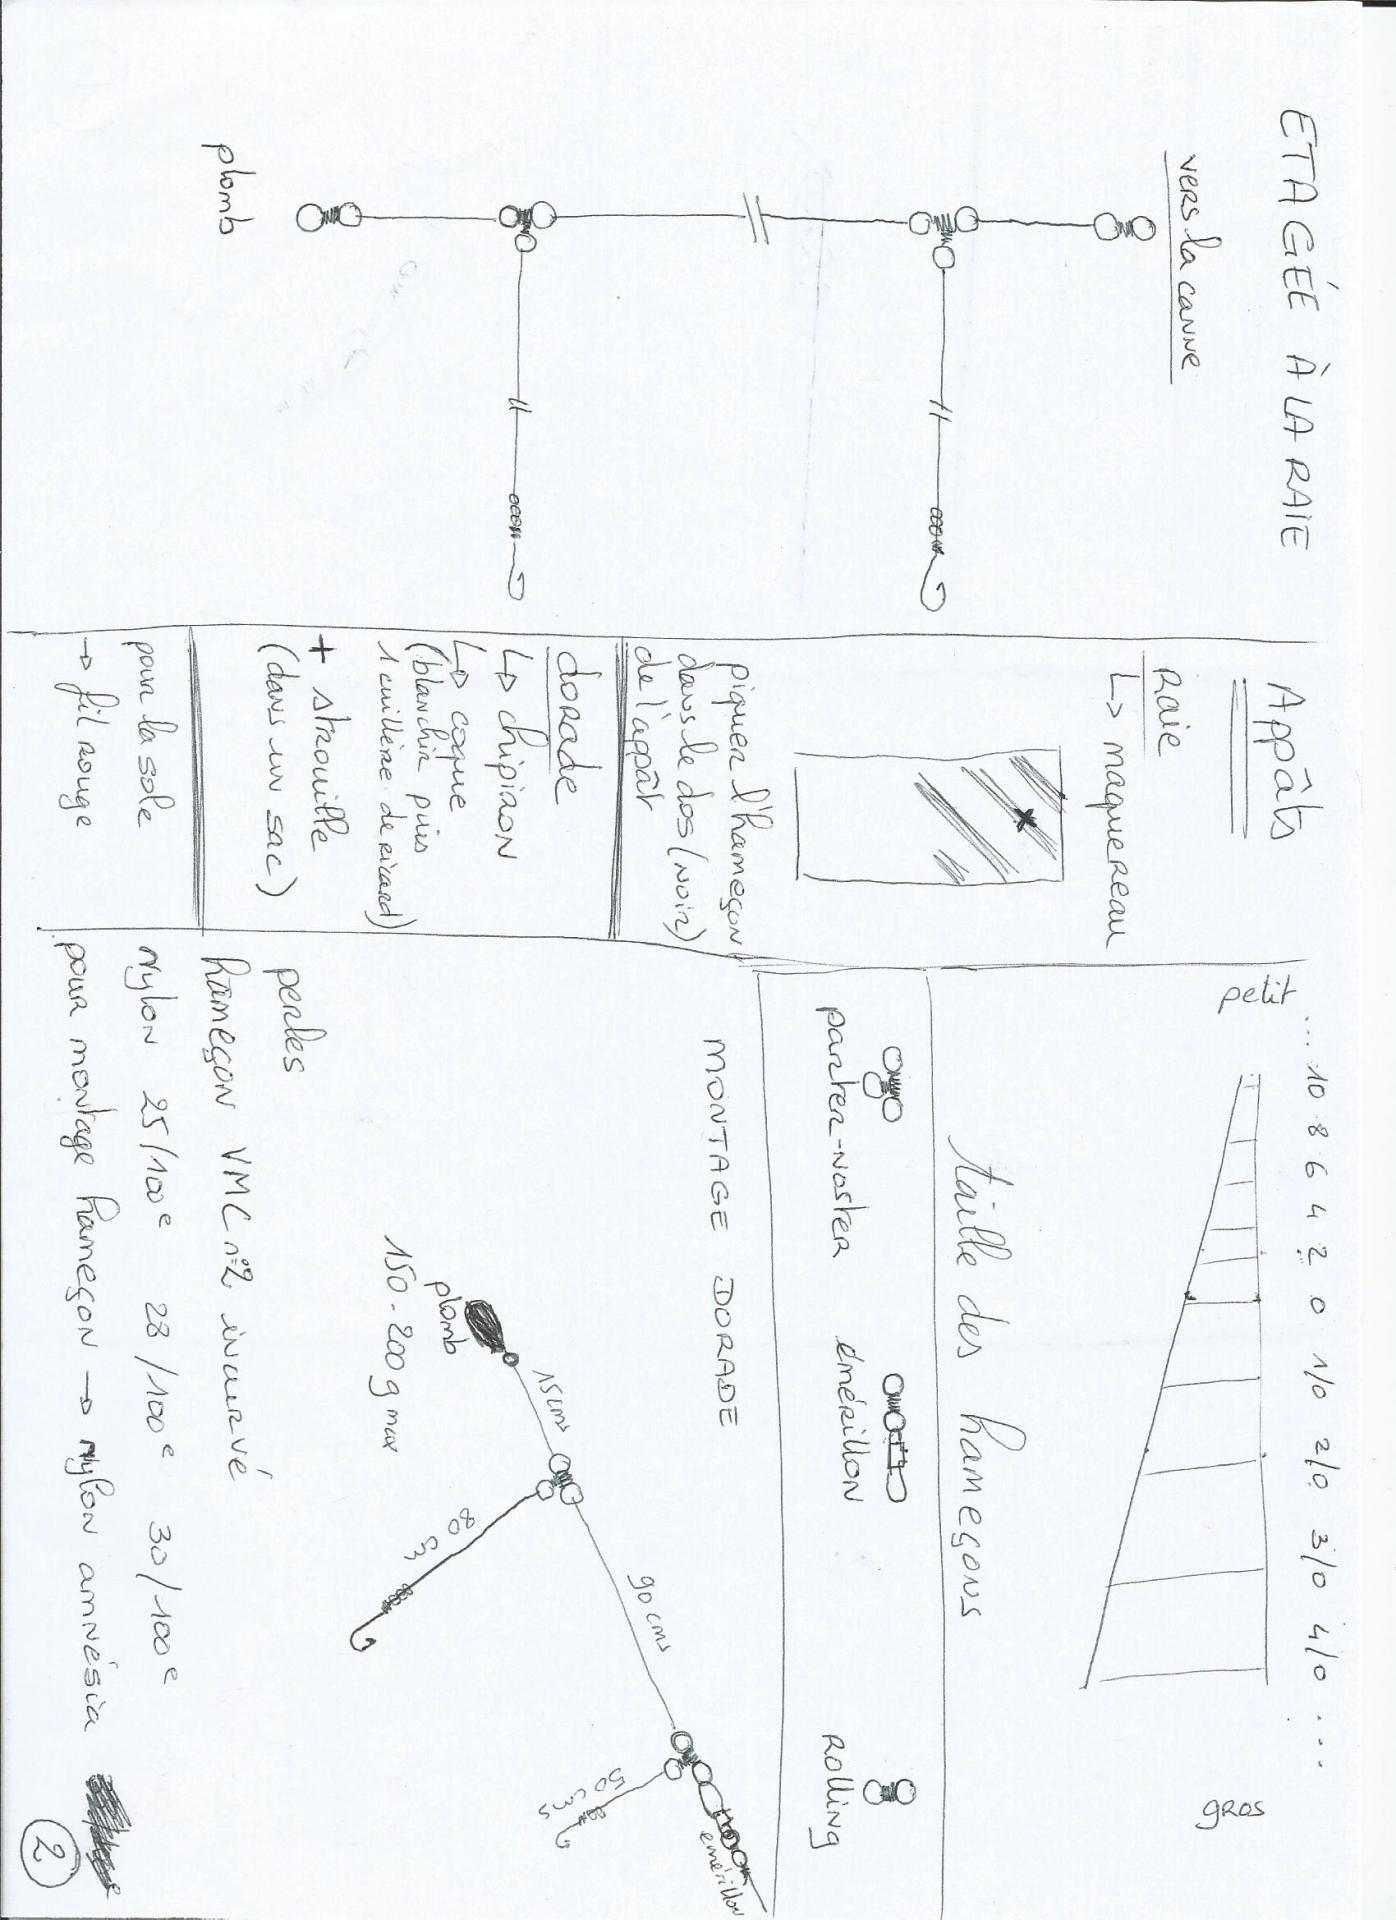 ETAGÉE À LA RAIE
vers la canne
plomb
Appâts
Raie
↳ maquereau
piquer l'hameçon
dans le dos (noir)
de l'appât
dorade
↳ chipiron
↳ coque
(blanchir puis
1 cuillère de ricard)
+ strouille
(dans un sac)
pour la sole
→ fil rouge
... 10 8 6 4 2 0 1/0 2/0 3/0 4/0 ....
petit
gros
taille des hameçons
parter-noster
émérillon
Rolling
MONTAGE DORADE
émérillon
90 cms
50 cms
15 cms
80 cm
plomb
150-200g max
perles
hameçon VMC n°2 incurvé
Nylon 25/100e 28/100e 30/100e
pour montage hameçon → Nylon amnésia
2